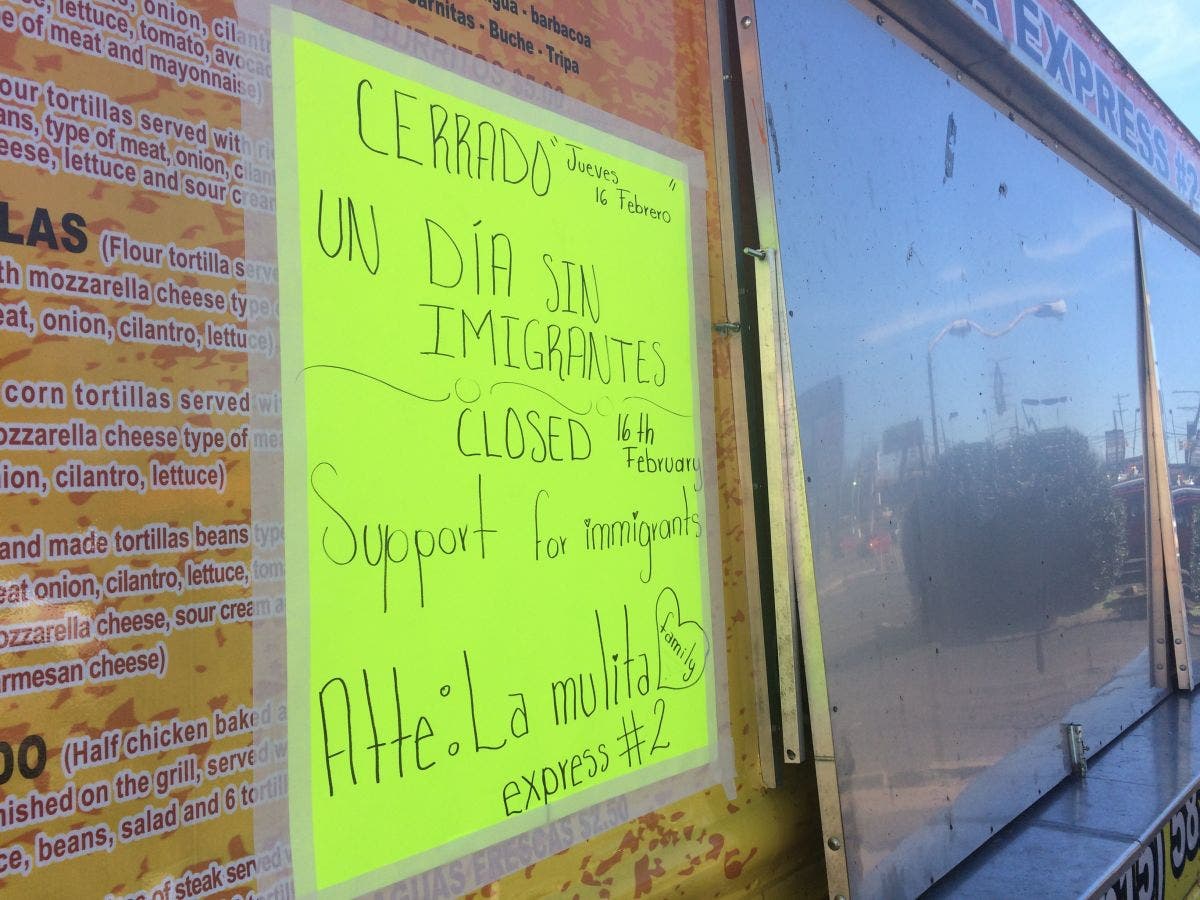 onion, cilant
lettuce, tomato, avocad
e of meat and mayonnaise)
our tortillas served with ri
ans, type of meat, onion, cilan
eese, lettuce and sour cream
LAS (Flour tortilla serve
th mozzarella cheese type
eat, onion, cilantro, lettuce)
corn tortillas served wi
ozzarella cheese type of mea
ion, cilantro, lettuce)
and made tortillas beans type
eat onion, cilantro, lettuce, tom
ozzarella cheese, sour cream a
armesan cheese)
DO (Half chicken baked a
nished on the grill, served w
ce, beans, salad and 6 tortill
of steak served
gua - barbacoa
arnitas - Buche - Tripa
BURRITOS $5.00
CERRADO "Jueves
16 Febrero"
UN DÍA SIN
IMIGRANTES
CLOSED 16th
February
Support for immigrants
Atte: La mulita family
express #2
AGUAS FRESCAS $2.50
A EXPRESS #2